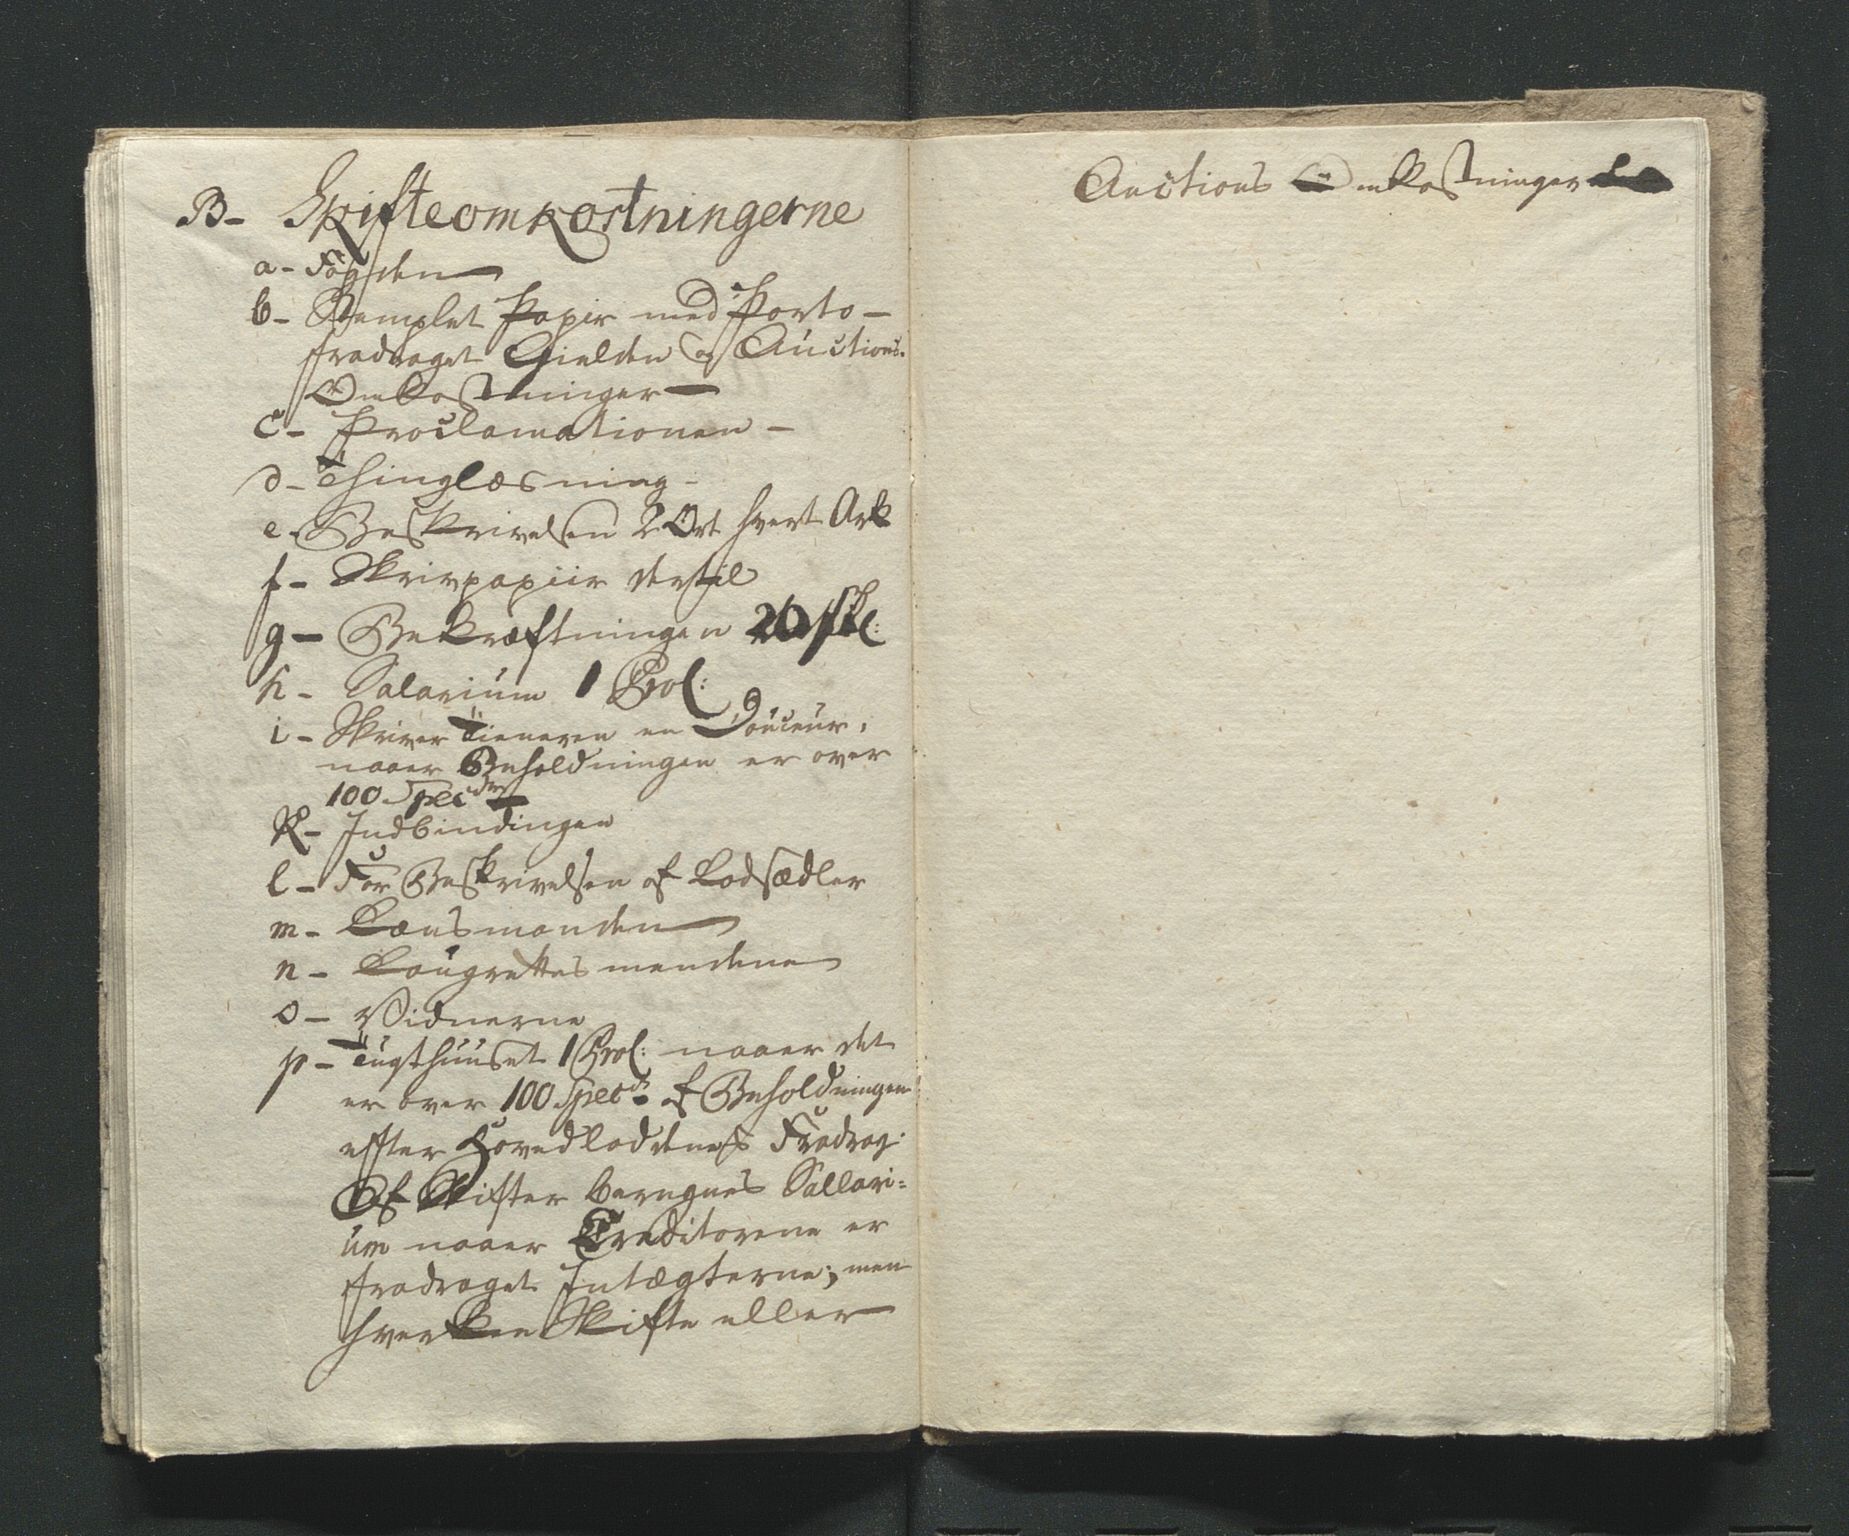 B- Skifteomkostningerne
a- Fogden
b- Stemplet Papir med Porto-
fradraget Gielden og Auctions-
Omkostninger-
c- Proclamationen-
d- Thinglæsning-
e- Beskrivelsen 2 Ort hvert Ark
f- Skrivpapiir dertil
g- Bekræftningen 26 skl:
h- Salarium 1 Prol:
i- Skriver Tieneren en Douceur,
naaer Beholdningen er over
100 Specdr
k- Indbindingen
l- For Beskrivelsen af Lodsædler
m- Lænsmanden
n- Laugrettesmendene
o- Vidnerne
p- Tugthuuset 1 Prol: naaer det
er over 100 Specdr af Beholdningen
efter Hovedloddens Fradrag.
Af Skifter beregnes Sallari=
um naaer Creditorene er
fradraget Intægterne; men
hverken Skifte eller
Auctions Omkostninger